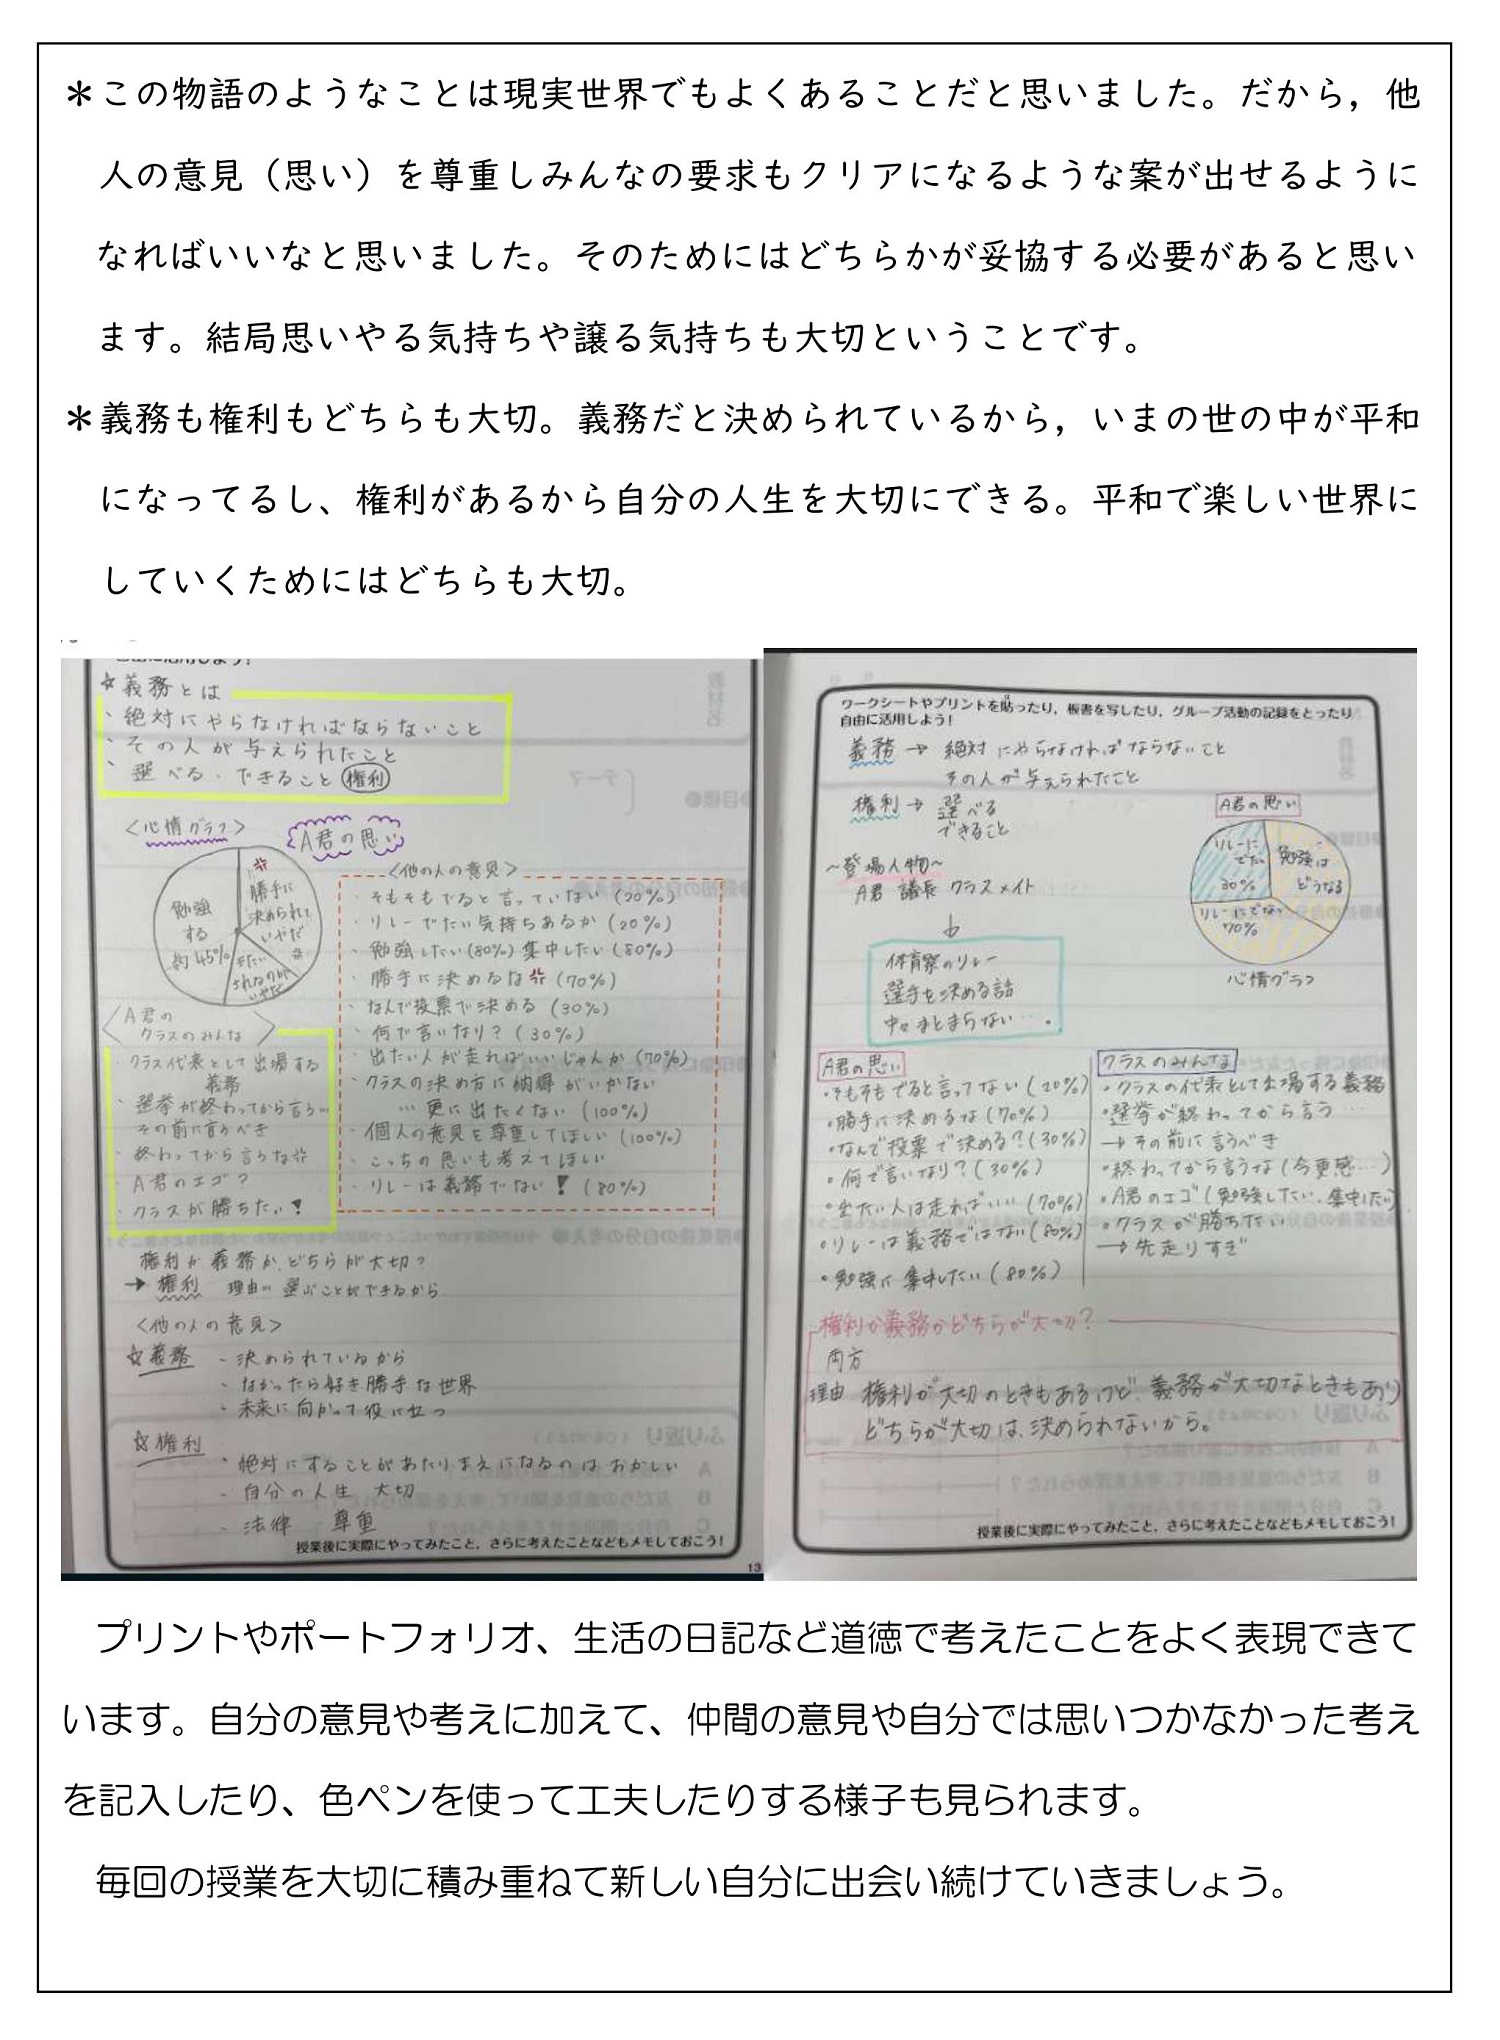 ＊この物語のようなことは現実世界でもよくあることだと思いました。だから，他
人の意見（思い）を尊重しみんなの要求もクリアになるような案が出せるように
なればいいなと思いました。そのためにはどちらかが妥協する必要があると思い
ます。結局思いやる気持ちや譲る気持ちも大切ということです。
＊義務も権利もどちらも大切。義務だと決められているから，いまの世の中が平和
になってるし、権利があるから自分の人生を大切にできる。平和で楽しい世界に
していくためにはどちらも大切。
☆義務とは
・絶対にやらなければならないこと
・その人が与えられたこと
・選べる・できること 権利
＜心情グラフ＞
A君の思い
勝手に
決められて
いやだ
勉強
する
約45%
＜他の人の意見＞
・そもそもでると言っていない（20%）
・リレーでたい気持ちあるか（20%）
・勉強したい（80%）集中したい（80%）
・勝手に決めるな（70%）
・なんで投票で決める（30%）
・何で言いなり？（30%）
・出たい人が走ればいいじゃんか（70%）
・クラスの決め方に納得がいかない
…更に出たくない（100%）
・個人の意見を尊重してほしい（100%）
・こっちの思いも考えてほしい
・リレーは義務でない！（80%）
＜A君の
クラスのみんな＞
・クラス代表として出場する
義務
・選挙が終わってから言う…
その前に言うべき
・終わってから言うな
・A君のエゴ？
・クラスが勝ちたい！
権利か義務か、どちらが大切？
→権利 理由… 選ぶことができるから
＜他の人の意見＞
☆義務 ・決められているから
・なかったら好き勝手な世界
・未来に向かって役に立つ
☆権利
・絶対にすることがあたりまえになるのはおかしい
・自分の人生 大切
・法律 尊重
授業後に実際にやってみたこと，さらに考えたことなどもメモしておこう！
13
ワークシートやプリントを貼ったり，板書を写したり，グループ活動の記録をとったり
自由に活用しよう！
義務→ 絶対にやらなければならないこと
その人が与えられたこと
権利→ 選べる
できること
～登場人物～
A君 議長 クラスメイト
↓
体育祭のリレー
選手を決める話
中々まとまらない…。
A君の思い
リレーに
でたい
30%
勉強は
どうなる
リレーにでない
70%
心情グラフ
A君の思い
・そもそもでると言ってない（20%）
・勝手に決めるな（70%）
・なんで投票で決める？（30%）
・何で言いなり？（30%）
・出たい人は走ればいい（70%）
・リレーは義務ではない（80%）
・勉強に集中したい（80%）
クラスのみんな
・クラスの代表として出場する義務
・選挙が終わってから言う…
→その前に言うべき
・終わってから言うな（今更感…）
・A君のエゴ（勉強したい、集中したい）
・クラスが勝ちたい
→先走りすぎ
権利か義務かどちらが大切？
両方
理由 権利が大切のときもあるけど、義務が大切なときもあり
どちらが大切は、決められないから。
授業後に実際にやってみたこと，さらに考えたことなどもメモしておこう！
プリントやポートフォリオ、生活の日記など道徳で考えたことをよく表現できて
います。自分の意見や考えに加えて、仲間の意見や自分では思いつかなかった考え
を記入したり、色ペンを使って工夫したりする様子も見られます。
毎回の授業を大切に積み重ねて新しい自分に出会い続けていきましょう。